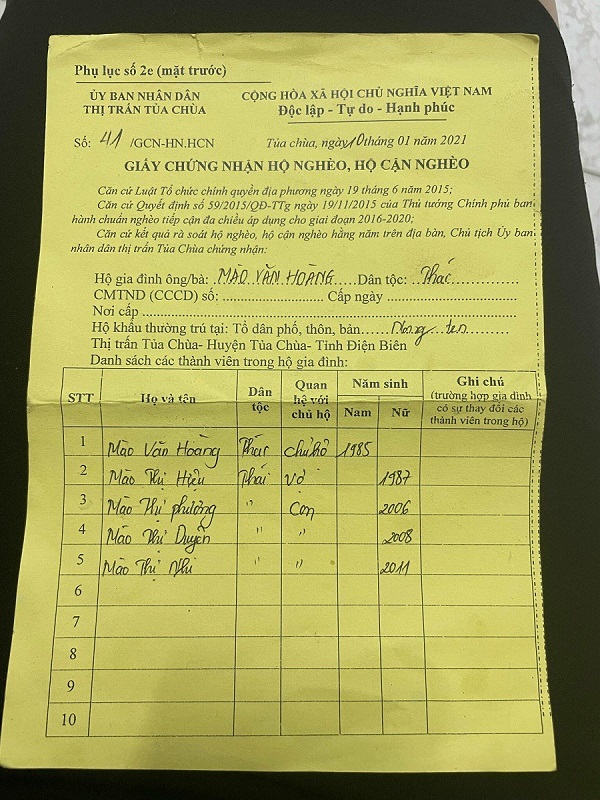 Phụ lục số 2e (mặt trước)
ỦY BAN NHÂN DÂN
THỊ TRẤN TỦA CHÙA
CỘNG HÒA XÃ HỘI CHỦ NGHĨA VIỆT NAM
Độc lập - Tự do - Hạnh phúc
Số: 41 /GCN-HN.HCN
Tủa chùa, ngày 10 tháng 01 năm 2021
GIẤY CHỨNG NHẬN HỘ NGHÈO, HỘ CẬN NGHÈO
Căn cứ Luật Tổ chức chính quyền địa phương ngày 19 tháng 6 năm 2015;
Căn cứ Quyết định số 59/2015/QĐ-TTg ngày 19/11/2015 của Thủ tướng Chính phủ ban
hành chuẩn nghèo tiếp cận đa chiều áp dụng cho giai đoạn 2016-2020;
Căn cứ kết quả rà soát hộ nghèo, hộ cận nghèo hằng năm trên địa bàn, Chủ tịch Ủy ban
nhân dân thị trấn Tủa Chùa chứng nhận:
Hộ gia đình ông/bà: MÀO VĂN HOÀNG Dân tộc: Thái
CMTND (CCCD) số: Cấp ngày
Nơi cấp
Hộ khẩu thường trú tại: Tổ dân phố, thôn, bản
Thị trấn Tủa Chùa- Huyện Tủa Chùa- Tỉnh Điện Biên
Danh sách các thành viên trong hộ gia đình:
STT Họ và tên Dân tộc Quan hệ với chủ hộ Năm sinh Nam Nữ Ghi chú (trường hợp gia đình có sự thay đổi các thành viên trong hộ)
1 Mào Văn Hoàng Thái chủ hộ 1985
2 Mào Thị Hiệu Thái vợ 1987
3 Mào Thị phương " Con 2006
4 Mào Thị Duyên " " 2008
5 Mào Thị Nhi " " 2011
6
7
8
9
10